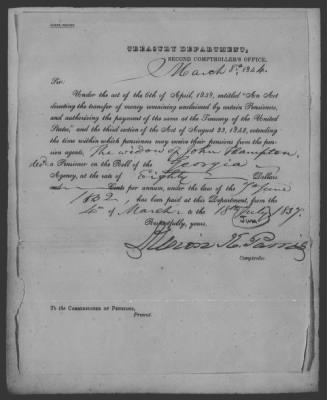 TREASURY DEPARTMENT,
SECOND COMPTROLLER'S OFFICE,
March 8th
Sir:
Under the act of the 6th of April, 1838, entitled "An Act
directing the transfer of money remaining unclaimed by certain Pensioners,
and authorizing the payment of the same at the Treasury of the United
States," and the third section of the Act of August 23, 1842, extending
the time within which pensioners may receive their pensions from the pen-
sion agents, The widow of John Thompson,
a Pensioner on the Roll of the Georgia
Agency, at the rate of Eighty Dollars
and Cents per annum, under the law of the 7th June
1832, has been paid at this Department, from the
4th of March to the 18th July 1837.
Respectfully, yours,
Comptroller.
To the COMMISSIONER OF PENSIONS,
Present.